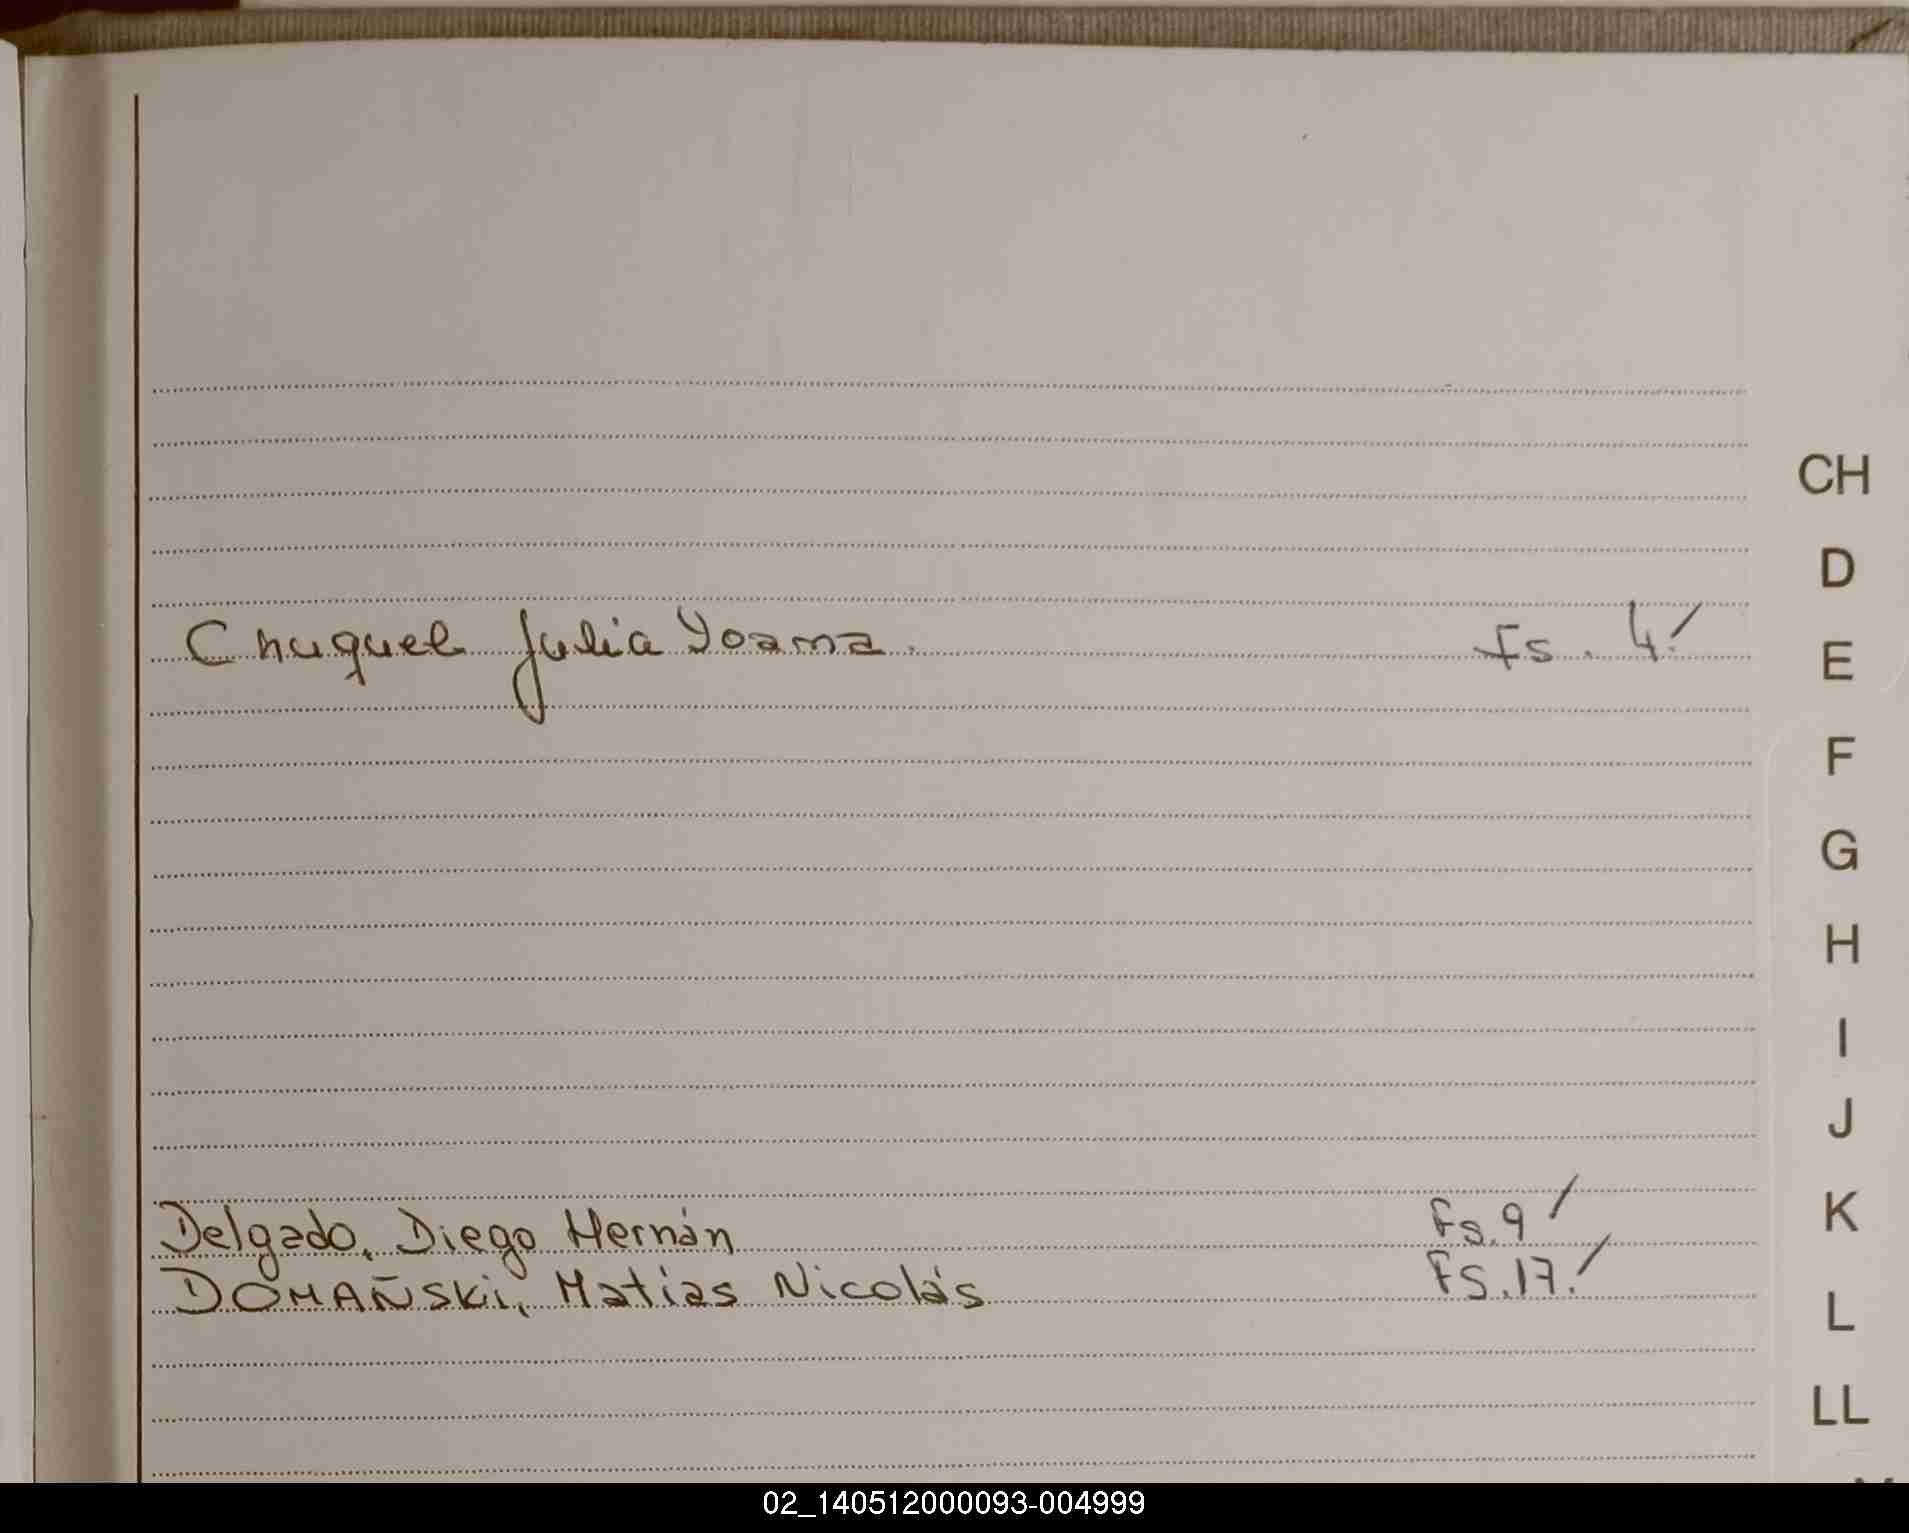 CH
D
Chuquel Julia Yoana. Fs. 4.
E
F
G
H
I
J
K
Delgado, Diego Hernán Fs. 9
DOMAÑSKi, Matías Nicolás FS. 17.
L
LL
02_140512000093-004999